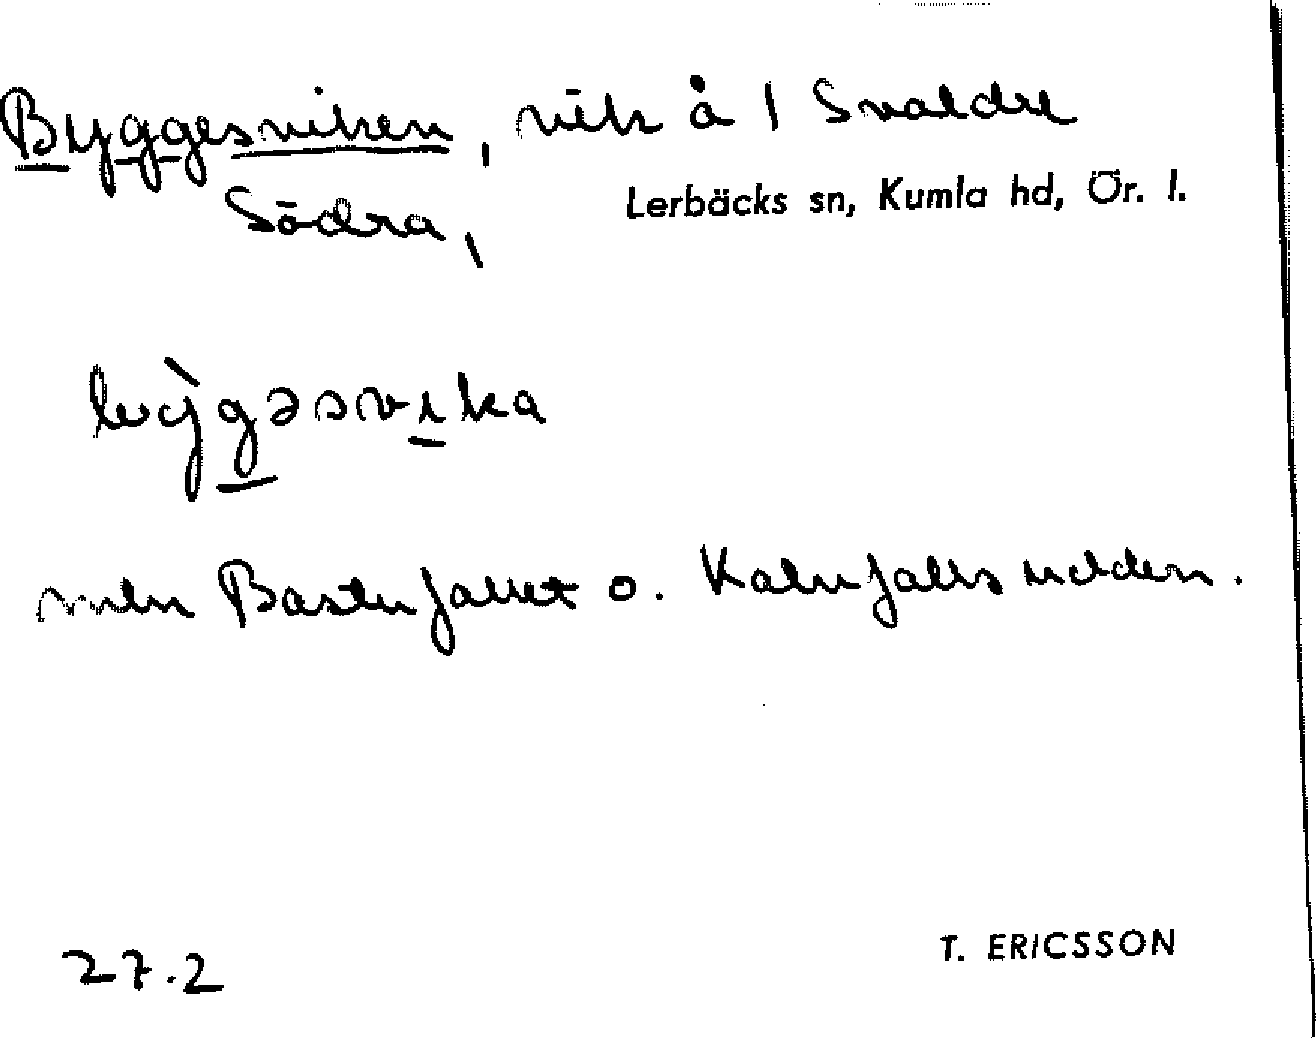 Byggesviken, vik å 1 Svaldre
Södra,
Lerbäcks sn, Kumla hd, Ör. l.
bỳgəsvika
mln Bastufallet o. Kalvfallsudden.
27.2
T. ERICSSON